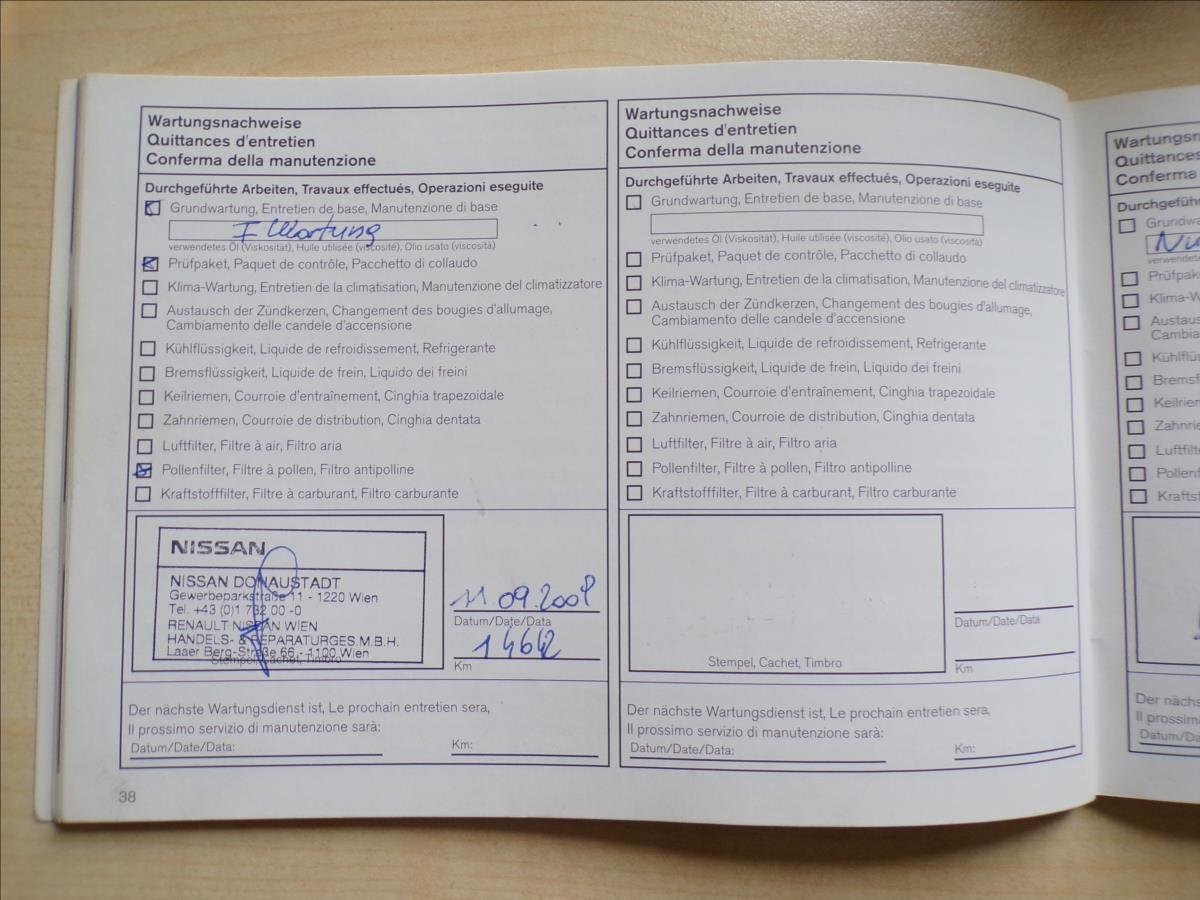 Wartungsnachweise
Quittances d'entretien
Conferma della manutenzione
Durchgeführte Arbeiten, Travaux effectués, Operazioni eseguite
Grundwartung, Entretien de base, Manutenzione di base
I Wartung
verwendetes Öl (Viskosität), Huile utilisée (viscosité), Olio usato (viscosità)
Prüfpaket, Paquet de contrôle, Pacchetto di collaudo
Klima-Wartung, Entretien de la climatisation, Manutenzione del climatizzatore
Austausch der Zündkerzen, Changement des bougies d'allumage,
Cambiamento delle candele d'accensione
Kühlflüssigkeit, Liquide de refroidissement, Refrigerante
Bremsflüssigkeit, Liquide de frein, Liquido dei freini
Keilriemen, Courroie d'entraînement, Cinghia trapezoidale
Zahnriemen, Courroie de distribution, Cinghia dentata
Luftfilter, Filtre à air, Filtro aria
Pollenfilter, Filtre à pollen, Filtro antipolline
Kraftstofffilter, Filtre à carburant, Filtro carburante
NISSAN
NISSAN DONAUSTADT
Gewerbeparkstraße 11 - 1220 Wien
Tel. +43 (0)1 732 00 -0
RENAULT NISSAN WIEN
HANDELS- & REPARATURGES.M.B.H.
Laaer Berg-Straße 66 - 1100 Wien
Stempel, Cachet, Timbro
11 09.2008
Datum/Date/Data
14642
Km
Der nächste Wartungsdienst ist, Le prochain entretien sera,
Il prossimo servizio di manutenzione sarà:
Datum/Date/Data:
Km:
38
Wartungsnachweise
Quittances d'entretien
Conferma della manutenzione
Durchgeführte Arbeiten, Travaux effectués, Operazioni eseguite
Grundwartung, Entretien de base, Manutenzione di base
verwendetes Öl (Viskosität), Huile utilisée (viscosité), Olio usato (viscosità)
Prüfpaket, Paquet de contrôle, Pacchetto di collaudo
Klima-Wartung, Entretien de la climatisation, Manutenzione del climatizzatore
Austausch der Zündkerzen, Changement des bougies d'allumage,
Cambiamento delle candele d'accensione
Kühlflüssigkeit, Liquide de refroidissement, Refrigerante
Bremsflüssigkeit, Liquide de frein, Liquido dei freini
Keilriemen, Courroie d'entraînement, Cinghia trapezoidale
Zahnriemen, Courroie de distribution, Cinghia dentata
Luftfilter, Filtre à air, Filtro aria
Pollenfilter, Filtre à pollen, Filtro antipolline
Kraftstofffilter, Filtre à carburant, Filtro carburante
Stempel, Cachet, Timbro
Datum/Date/Data
Km
Der nächste Wartungsdienst ist, Le prochain entretien sera,
Il prossimo servizio di manutenzione sarà:
Datum/Date/Data:
Km:
Wartungsn
Quittances
Conferma
Durchgeführ
Grundwa
verwendete
Prüfpak
Klima-W
Austaus
Cambia
Kühlflüs
Bremsf
Keilrien
Zahnrie
Luftfilt
Pollenf
Krafts
Der nächs
Il prossim
Datum/D